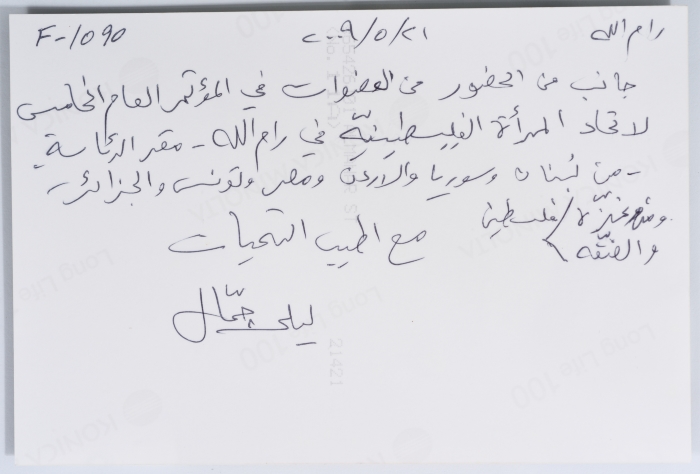 رام الله ٢٠٠٩/٥/٢١ F-1090
جانب من الحضور من العضوات في المؤتمر العام الخامس
لاتحاد المرأة الفلسطينيّة في رام الله - مقر الرئاسة
- من لبنان وسوريا والأردن ومصر وتونس والجزائر -
ومن غزّة / فلسطين
والضفّه
مع اطيب التحيات
ليلى جمّال
Long Life 100
KONICA
21421